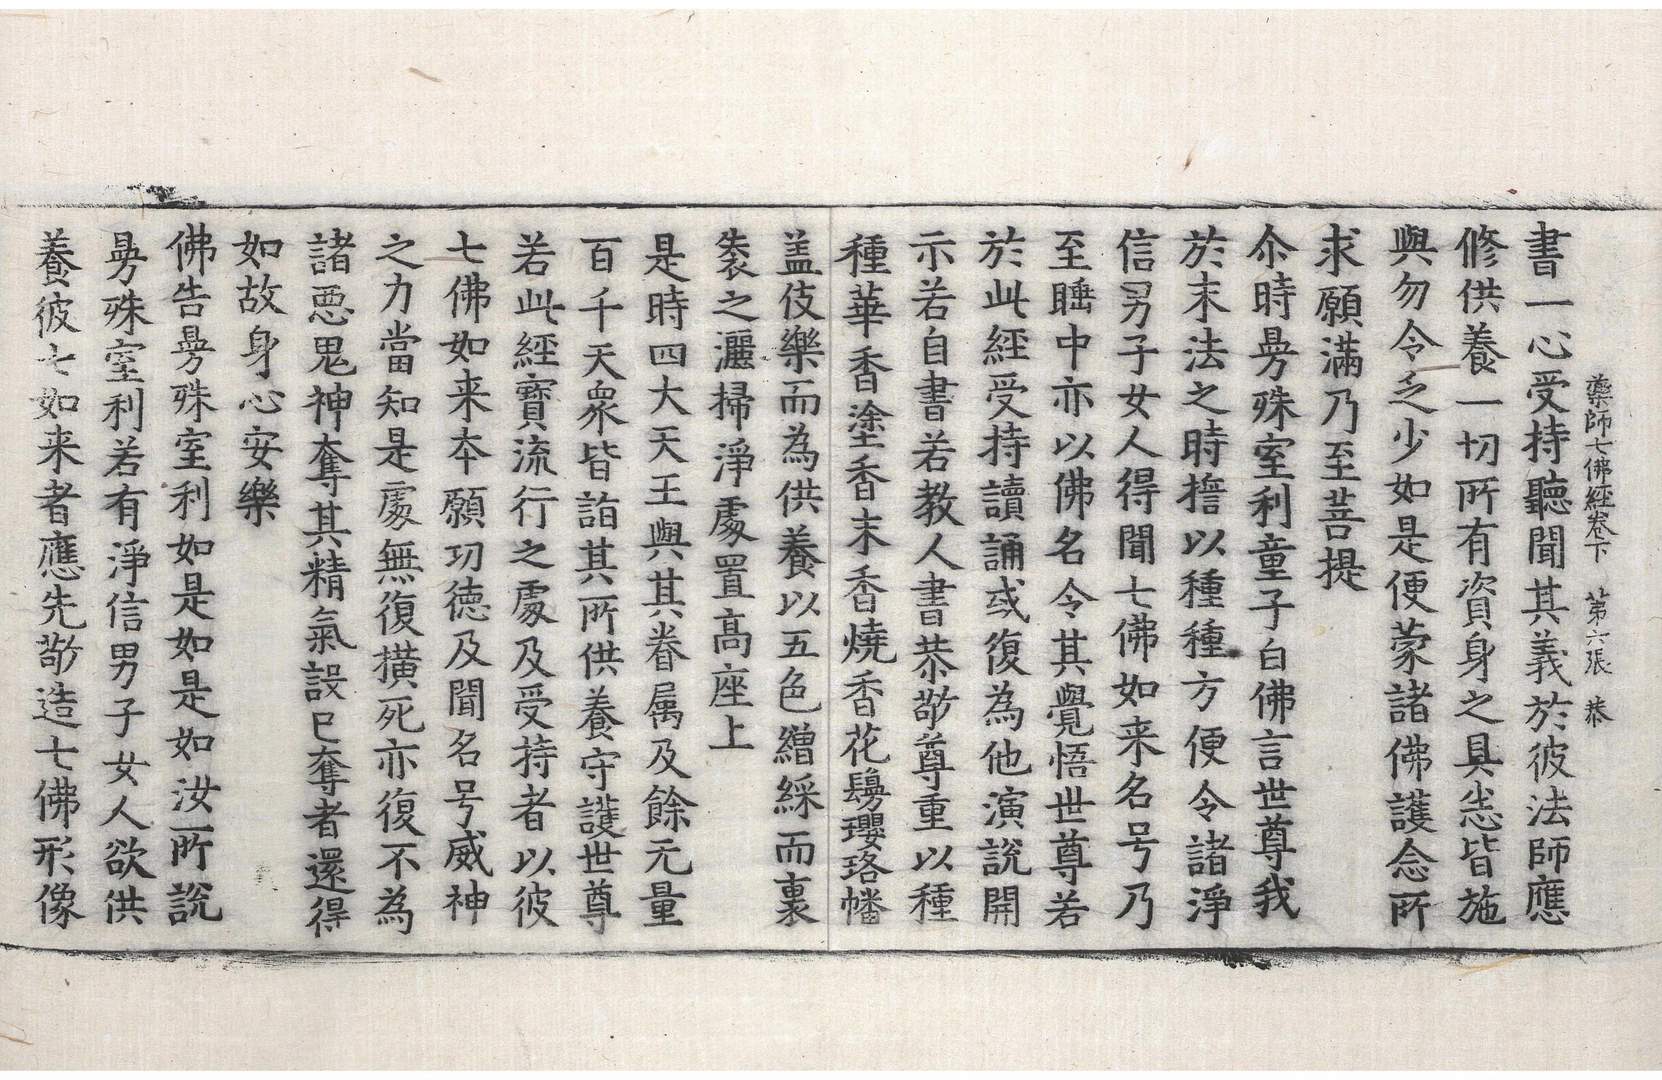 藥師七佛經卷下　第六張　恭
書一心受持聽聞其義於彼法師應
修供養一切所有資身之具悉皆施
與勿令乏少如是便蒙諸佛護念所
求願滿乃至菩提
尒時曼殊室利童子白佛言世尊我
於末法之時誓以種種方便令諸淨
信男子女人得聞七佛如来名号乃
至睡中亦以佛名令其覺悟世尊若
於此經受持讀誦或復為他演說開
示若自書若教人書恭敬尊重以種
種華香塗香末香燒香花鬘瓔珞幡
盖伎樂而為供養以五色繒綵而裏
袠之灑掃淨處置高座上
是時四大天王與其眷属及餘无量
百千天衆皆詣其所供養守護世尊
若此經寶流行之處及受持者以彼
七佛如来本願功德及聞名号威神
之力當知是處無復撗死亦復不為
諸惡鬼神奪其精氣設已奪者還得
如故身心安樂
佛告曼殊室利如是如是如汝所說
曼殊室利若有淨信男子女人欲供
養彼七如来者應先敬造七佛形像